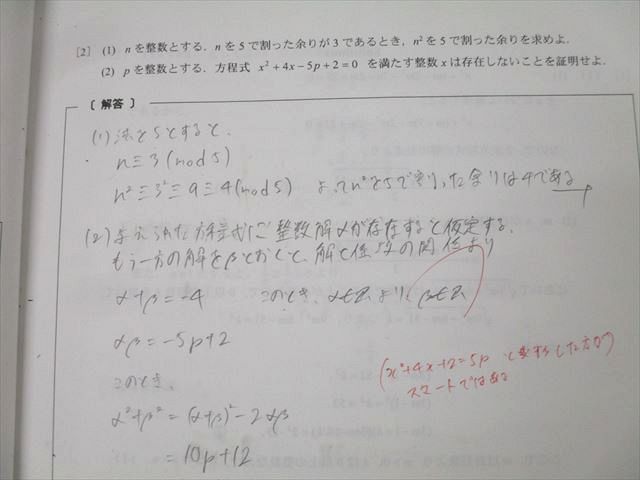 [2] (1) nを整数とする．nを5で割った余りが3であるとき，n²を5で割った余りを求めよ．
(2) pを整数とする．方程式 x²+4x−5p+2=0 を満たす整数xは存在しないことを証明せよ．
〔解答〕
(1) 法を5とすると、
n≡3 (mod 5)
n²≡3²≡9≡4 (mod 5) よってn²を5で割った余りは4である
(2) 与えられた方程式に整数解αが存在すると仮定する。
もう一方の解をβとおくと、解と係数の関係より
α+β=-4 このとき、α∈Zより、β∈Z
αβ=-5p+2
このとき、
α²+β²=(α+β)²-2αβ
=10p+12
(x²+4x+2=5p と変形した方が
スマートではある)